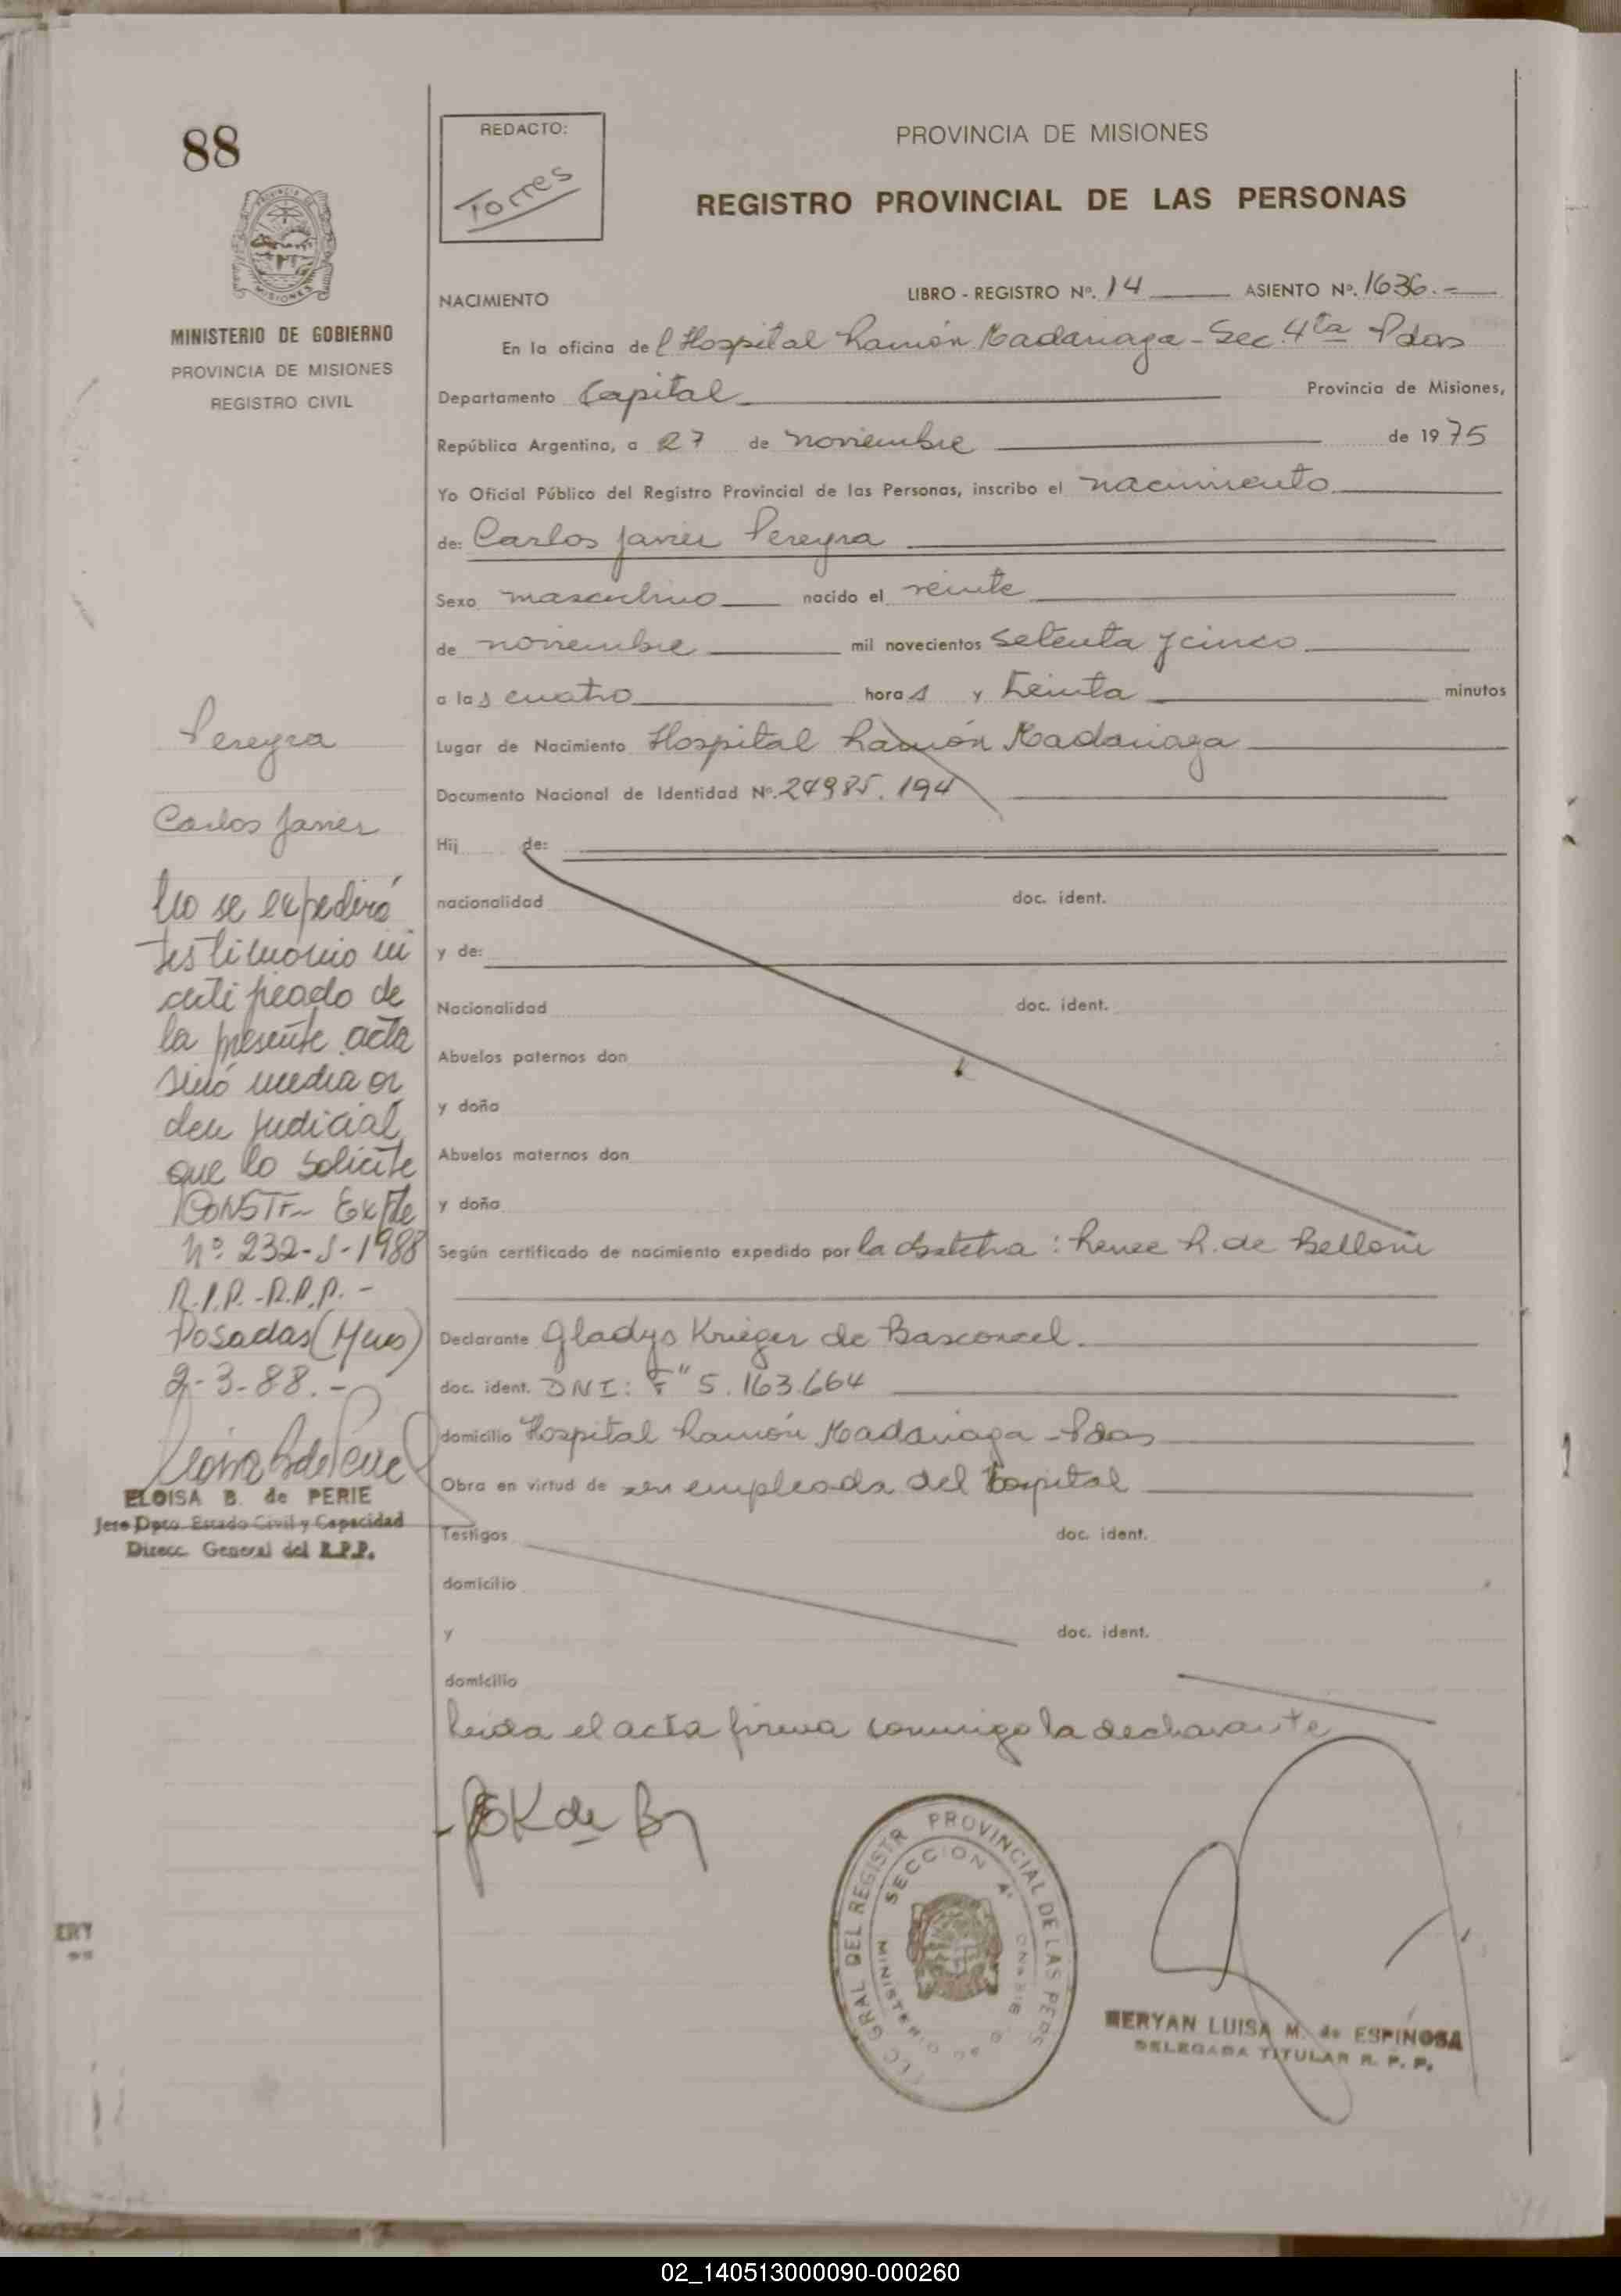 88
REDACTO:
Torres
PROVINCIA DE MISIONES
REGISTRO PROVINCIAL DE LAS PERSONAS
MINISTERIO DE GOBIERNO
PROVINCIA DE MISIONES
REGISTRO CIVIL
NACIMIENTO
LIBRO - REGISTRO Nº. 14 ASIENTO Nº. 1636.-
En la oficina del Hospital Ramón Madariaga - Sec. 4ta Pdas
Departamento Capital Provincia de Misiones,
República Argentina, a 27 de noviembre de 1975
Yo Oficial Público del Registro Provincial de las Personas, inscribo el nacimiento
de: Carlos Javier Pereyra
Sexo masculino nacido el veinte
de noviembre mil novecientos setenta y cinco
a las cuatro horas y treinta minutos
Lugar de Nacimiento Hospital Ramón Madariaga
Documento Nacional de Identidad Nº. 24985.194
Hij de:
nacionalidad doc. ident.
y de:
Nacionalidad doc. ident.
Abuelos paternos don
y doña
Abuelos maternos don
y doña
Según certificado de nacimiento expedido por la obstetra: Renee R. de Belloni
Declarante Gladys Krieger de Basconcel.
doc. ident. DNI: F" 5.163.664
domicilio Hospital Ramón Madariaga - Pdas
Obra en virtud de ser empleada del Hospital
Testigos doc. ident.
domicilio
y doc. ident.
domicilio
Leida el acta firma conmigo la declarante
Pereyra
Carlos Javier
No se expedirá
testimonio ni
certificado de
la presente acta
sinó media or
den judicial
que lo solicite
CONSTE- Expte
Nº 232-S-1988
R.I.P.-R.P.P.-
Posadas (Mnes)
2-3-88.-
ELOISA B. de PERIE
Jefe Dpto. Estado Civil y Capacidad
Direcc. General del R.P.P.
GK de B
GRAL DEL REGISTR PROVINCIAL DE LAS PERS
SECCION 4ª
MINISTERIO DE
MERYAN LUISA M. de ESPINOSA
DELEGADA TITULAR R. P. P.
ERY
02_140513000090-000260